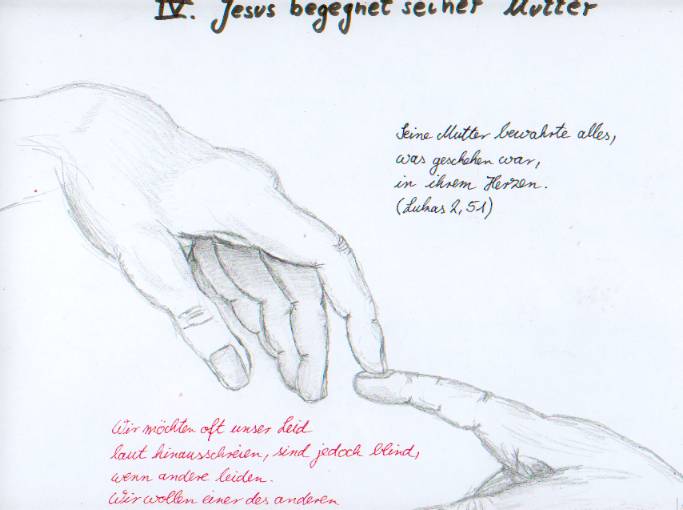 IV. Jesus begegnet seiner Mutter
Seine Mutter bewahrte alles,
was geschehen war,
in ihrem Herzen.
(Lukas 2,51)
Wir möchten oft unser Leid
laut hinausschreien, sind jedoch blind,
wenn andere leiden.
Wir wollen einer des anderen